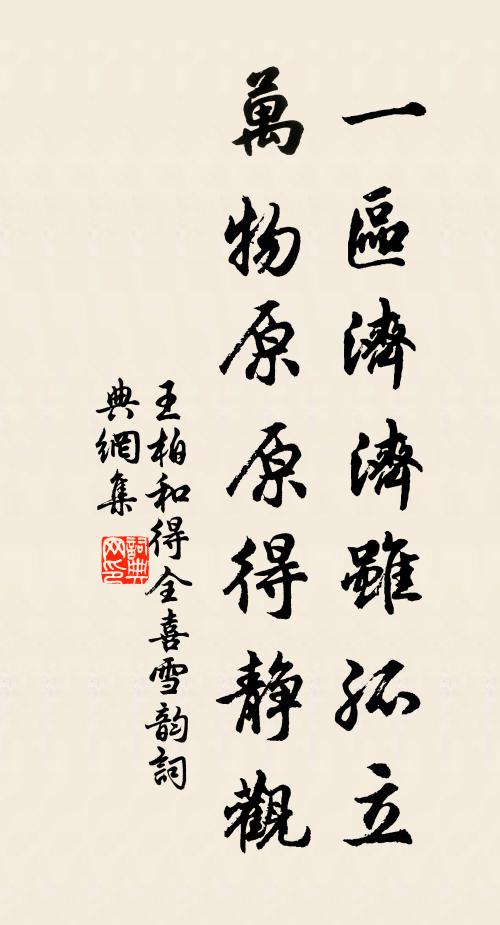 一區濟濟雖孤立
萬物原原得静觀
王柏和得全喜雪韵詞
典網集
詞典
网印